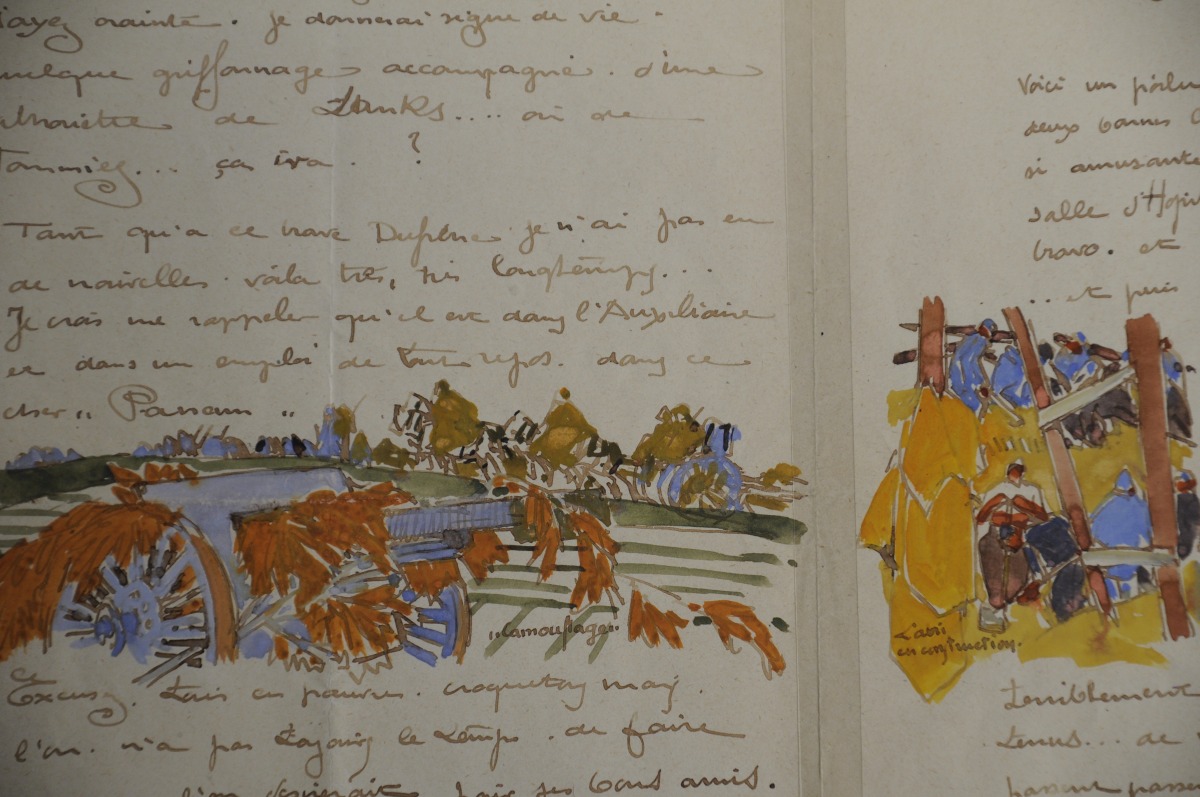 ayez crainte. je donnerai signe de vie.
quelque griffonnage accompagné. d'une
silhouette de Tanks.... ou de
Tommies... ça ira. ?
Tant qu'a ce brave Dufrêne je n'ai pas eu
de nouvelles. voila très, très longtemps...
Je crois me rappeler qu'il est dans l'Auxiliaire
et dans un emploi de tout repos. dans ce
cher „ Panam "
„camouflage"
Excusez. ces pauvres. croquetons mais.
l'on. n'a pas toujours le temps. de faire
l'on désirerait pour ses bons amis.
Voici un poilu
deux bonnes
si amusante
salle d'Hopi
bravo. et
... et puis
L'abri
en construction.
Terriblement
tenus... de
passent passe